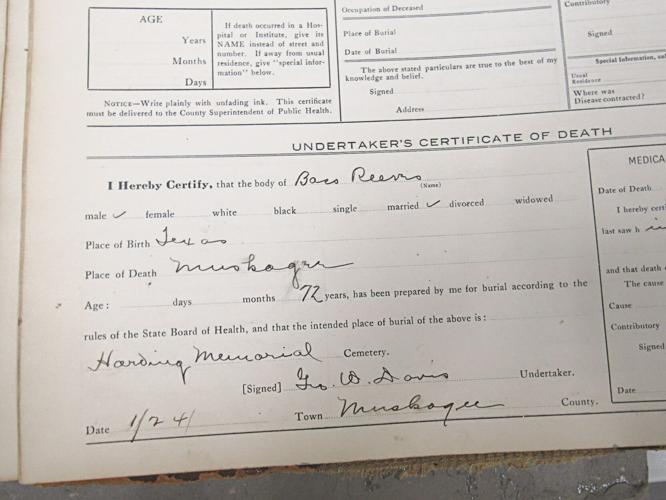 AGE
Years
Months
Days
If death occurred in a Hos-
pital or Institute, give its
NAME instead of street and
number. If away from usual
residence, give "special infor-
mation" below.
NOTICE—Write plainly with unfading ink. This certificate
must be delivered to the County Superintendent of Public Health.
Occupation of Deceased
Place of Burial
Date of Burial
The above stated particulars are true to the best of my
knowledge and belief.
Signed
Address
Contributory
Signed
Special Information,
Usual
Residence
Where was
Disease contracted?
UNDERTAKER'S CERTIFICATE OF DEATH
I Hereby Certify, that the body of Bass Reeves
(Name)
male ✓ female white black single married ✓ divorced widowed
Place of Birth Texas
Place of Death Muskogee
Age: days months 72 years, has been prepared by me for burial according to the
rules of the State Board of Health, and that the intended place of burial of the above is:
Harding Memorial Cemetery.
[Signed] Geo. W. Davis Undertaker.
Date 1/24/ Town Muskogee County.
MEDICA
Date of Death
I hereby cert
last saw h
and that death
The cause
Cause
Contributory
Signed
Date